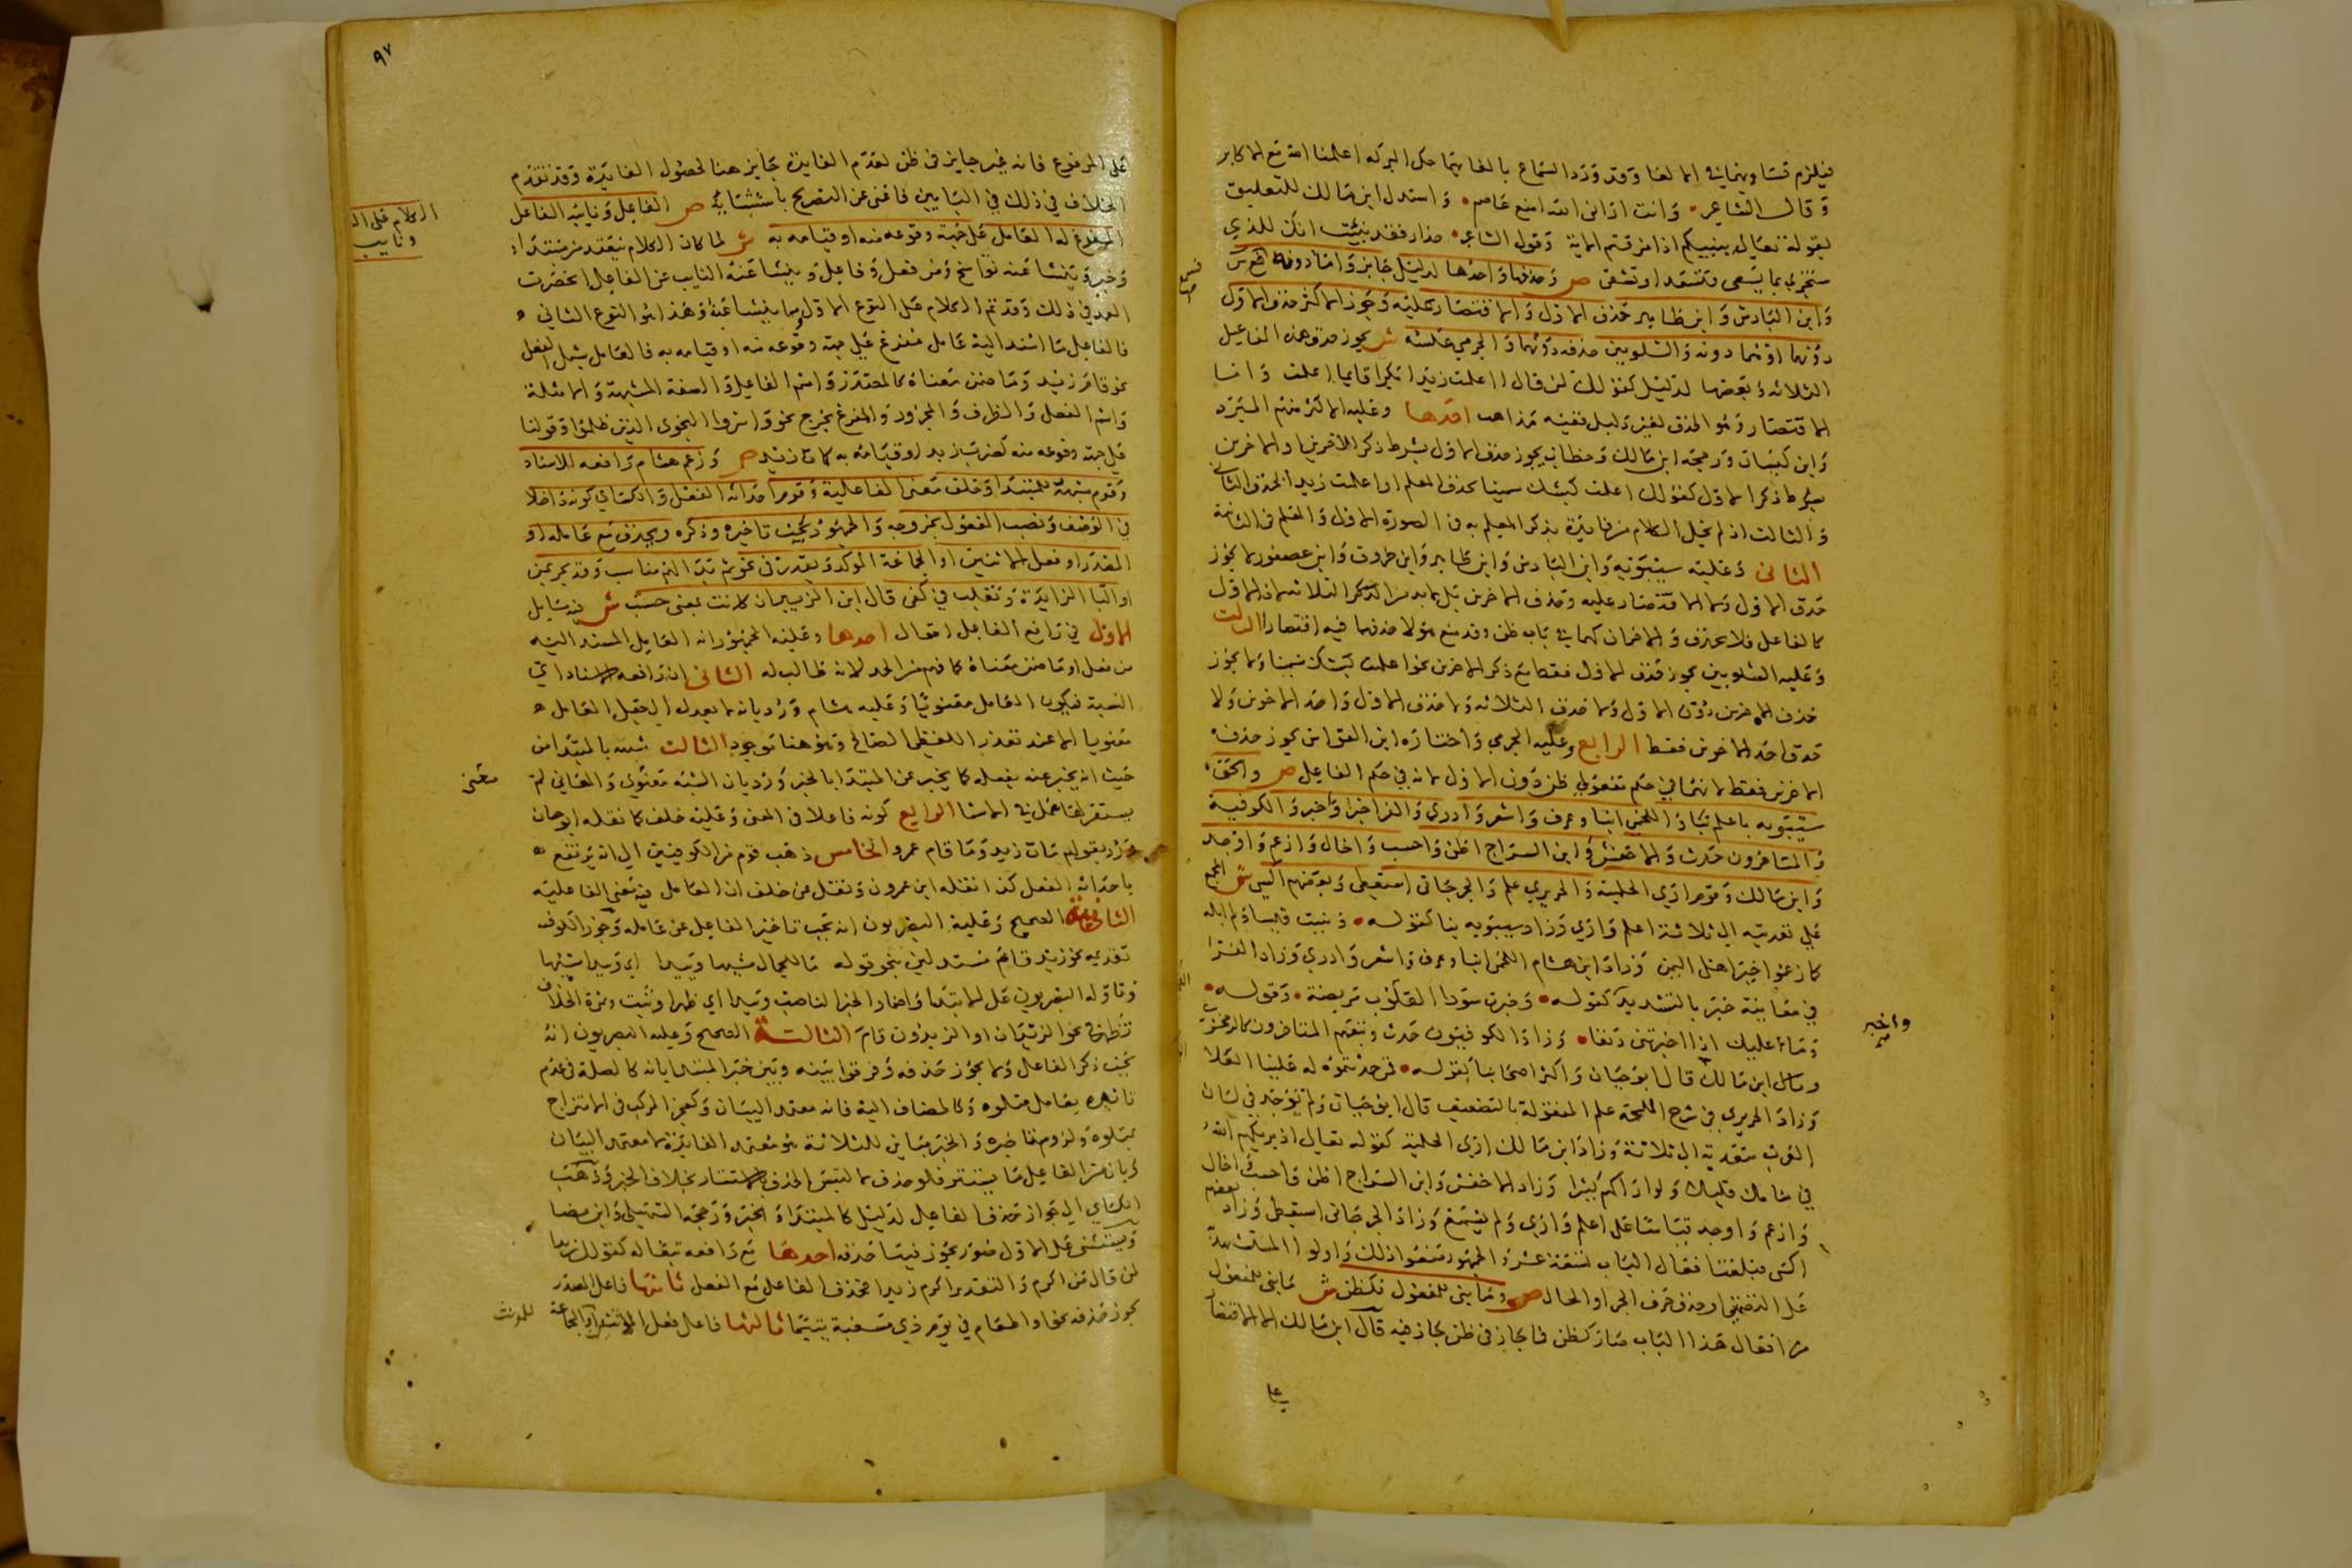 فيلزم تساويهما في الالغا وقد ورد السماع بالغائهما حكى البركه اعلمنا الله مع الاكابر
وقال الشاعر وانت اراني الله امنع عاصم واستدل ابن مالك للتعليق
بقوله تعالى ينبيكم اذا مزقتم الاية وقول الشاعر حذار فقد نبئت انك للذي
ستجزى بما تسعى فتسعد او تشقى ص وحذفها واحدها لدليل جايز واما دونه
وابن الباذش وابن طاهر حذف الاول والاقتصار عليه وجوز الاكثر حذف الاول
دونهما اوهما دونه والشلوبين حذفه دونهما والجرمي عكسه ش يجوز حذف هذه المفاعيل
الثلاثة وبعضها لدليل كقولك لمن قال ااعلمت زيدا بكرا قايما اعلمت واما
الاقتصار وهو الحذف لغير دليل ففيه مذاهب احدها وعليه الاكثر منهم المبرد
وابن كيسان ورجحه ابن مالك وخطاب يجوز حذف الاول بشرط ذكر الاخرين والاخرين
بشرط ذكر الاول كقولك اعلمت كبشك سمينا بحذف المعلم او اعلمت زيدا بحذف الثاني
والثالث اذ لم يخل الكلام من فايدة بذكر المعلم به في الصورة الاولى والمعلم في الثانية
الثاني وعليه سيبويه وابن الباذش وابن طاهر وابن خروف وابن عصفور لا يجوز
حذف الاول ولا الاقتصار عليه وحذف الاخرين بل لابد من الثلاثة لان الاول
كالفاعل فلا يحذف والاخران كهما في باب ظن وقد منع هؤلا حذفهما فيه اقتصارا الثالث
وعليه الشلوبين يجوز حذف الاول فقط مع ذكر الاخرين نحو اعلمت كبشك سمينا ولا يجوز
حذف الاخرين دون الاول ولا حذف الثلاثة ولا حذف الاول واحد الاخرين ولا
حذف احد الاخرين فقط الرابع وعليه الجرمي واختاره ابن القواس يجوز حذف
الاخرين فقط لانهما في حكم مفعولي ظن دون الاول لانه في حكم الفاعل ص والحق
سيبويه باعلم نبا واللخمي انبا وعرف واشعر وادرى والفرا خبر واخبر والكوفية
والمتاخرون حدث والاخفش وابن السراج اظن واحسب واخال وازعم واوجد
وابن مالك وقوم ارى الحلمية والحريري علم والجرجاني استعطى وبعضهم اكسى ش اجمع
على تعديته الى ثلاثة اعلم وارى وزاد سيبويه نبا كقوله ونبئت قيسا ولم ابله
كما زعموا خير اهل اليمن وزاد ابن هشام اللخمي انبا وعرف واشعر وادرى وزاد الفرا
في معانيه خبر بالتشديد كقوله وخبرت سودا القلوب مريضة وقوله
وما عليك اذا اخبرتني دنفا وزاد الكوفيون حدث وتبعهم المتاخرون كالزمخشري
وابن مالك قال ابو حيان واكثر اصحابنا كقوله فمن حدثتموه له علينا العلا
وزاد الحريري في شرح الملحة علم المنقولة بالتضعيف قال ابو حيان ولم توجد في لسان
العرب متعدية الى ثلاثة وزاد ابن مالك ارى الحلمية كقوله تعالى اذ يريكهم الله
في منامك قليلا ولو اراكهم كثيرا وزاد الاخفش وابن السراج اظن واحسب واخال
وازعم واوجد قياسا على اعلم وارى ولم يسمع وزاد الجرجاني استعطى وزاد بعضهم
اكسى فبلغت افعال الباب تسعة عشر والجمهور منعوا ذلك واولوا المستشهد
على التضمين او حذف حرف الجر او الحال ص وما بني للمفعول فكظن ش ما بني للمفعول
من افعال هذا الباب صار كظن فما جاز في ظن جاز فيه قال ابن مالك الا الاقتصار
على
واخبر
٩٧
على المرفوع فانه غير جايز في ظن لعدم الفايدة جايز هنا لحصول الفايدة وقد تقدم
الخلاف في ذلك في البابين فاغنى عن التصريح باستثنائه ص الفاعل ونايبه الفاعل
المفرغ له العامل على جهة وقوعه منه او قيامه به ش لما كان الكلام ينعقد من مبتدا
وخبر وتنشا عنه نواسخ ومن فعل وفاعل وينشا عنه النايب عن الفاعل انحصرت
العمد في ذلك وقد تم الكلام على النوع الاول وما ينشا عنه وهذا هو النوع الثاني
فالفاعل ما اسند اليه عامل مفرغ على جهة وقوعه منه او قيامه به فالعامل يشمل الفعل
نحو قام زيد وما ضمن معناه كالمصدر واسم الفاعل والصفة المشبهة والامثلة
واسم الفعل والظرف والمجرور والمفرغ يخرج نحو واسروا النجوى الذين ظلموا وقولنا
على جهة وقوعه منه كضرب زيد او قيامه به كمات زيد ص وزعم هشام رافعه الاسناد
وقوم شبهه للمبتدا وخلف معنى الفاعلية وقوم احداثه الفعل والكسائي كونه داخلا
في الوصف ونصب المفعول بخروجه والجمهور يجب تاخيره وذكره ويحذف مع عامله او
المصدر او فعل الاثنين او الجماعة الموكد ويقدر في نحو ثم بدا لهم مناسب وقد يجر بمن
او البا الزايدة وتغلب في كفى قال ابن الزبير ان كانت بمعنى حسب ش فيه مسايل
الاولى في رافع الفاعل اقوال احدها وعليه الجمهور انه العامل المسند اليه
من فعل او ما ضمن معناه كما فهم من الحد لانه طالب له الثاني ان رافعه الاسناد اي
النسبة فيكون العامل معنويا وعليه هشام ورد بانه لا يعدل الى جعل العامل
معنويا الا عند تعذر اللفظي الصالح وهو هنا موجود الثالث شبهه بالمبتدا من
حيث انه يخبر عنه بفعله كما يخبر عن المبتدا بالخبر ورد بان الشبه معنوي والمعاني لم
يستقر لها عمل في الاسما الرابع كونه فاعلا في المعنى وعليه خلف كما نقله ابو حيان
ورد بقولهم مات زيد وما قام عمرو الخامس ذهب قوم من الكوفيين الى انه يرتفع
باحداثه الفعل كذا نقله ابن عمرون ونقل عن خلف ان العامل فيه معنى الفاعلية
الثانية الصحيح وعليه البصريون انه يجب تاخير الفاعل عن عامله وجوز الكوفية
تقديمه نحو زيد قام مستدلين بنحو قوله ما للجمال مشيها وئيدا اي وئيدا مشيها
وتاوله البصريون على الابتدا واضمار الخبر الناصب وئيدا اي ظهر او ثبت وثمرة الخلاف
تظهر في نحو الزيدان او الزيدون قام الثالثة الصحيح وعليه البصريون انه
يجب ذكر الفاعل ولا يجوز حذفه وفرقوا بينه وبين خبر المبتدا بانه كالصلة في عدم
تاثره بعامل متلوه وكالمضاف اليه فانه معتمد البيان وكعجز المركب في الامتزاج
بمتلوه ولزوم تاخره والخبر مباين للثلاثة هو معتمد الفايدة لا معتمد البيان
وبان من الفاعل ما يستتر فلو حذف لالتبس الحذف بالاستتار بخلاف الخبر وذهب
الكسائي الى جواز حذف الفاعل لدليل كالمبتدا والخبر ورجحه السهيلي وابن مضا
ويستثنى على الاول صور يجوز فيها حذفه احدها مع رافعه تبعا له كقولك زيدا
لمن قال من اكرم والتقدير اكرم زيدا فحذف الفاعل مع الفعل ثانيها فاعل المصدر
يجوز حذفه نحو او اطعام في يوم ذي مسغبة يتيما ثالثها فاعل فعل الاثنين او الجماعة
الكلام على ال
ونايب
معنى
للمونث